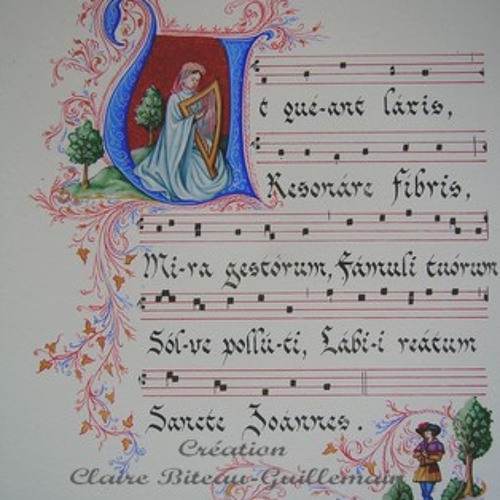 Ut qué-ant láxis,
Resonáre fibris,
Mi-ra gestórum, Fámuli tuórum
Sól-ve pollú-ti, Lábi-i reátum
Sancte Joánnes.
Création
Claire Biteau-Guillemain